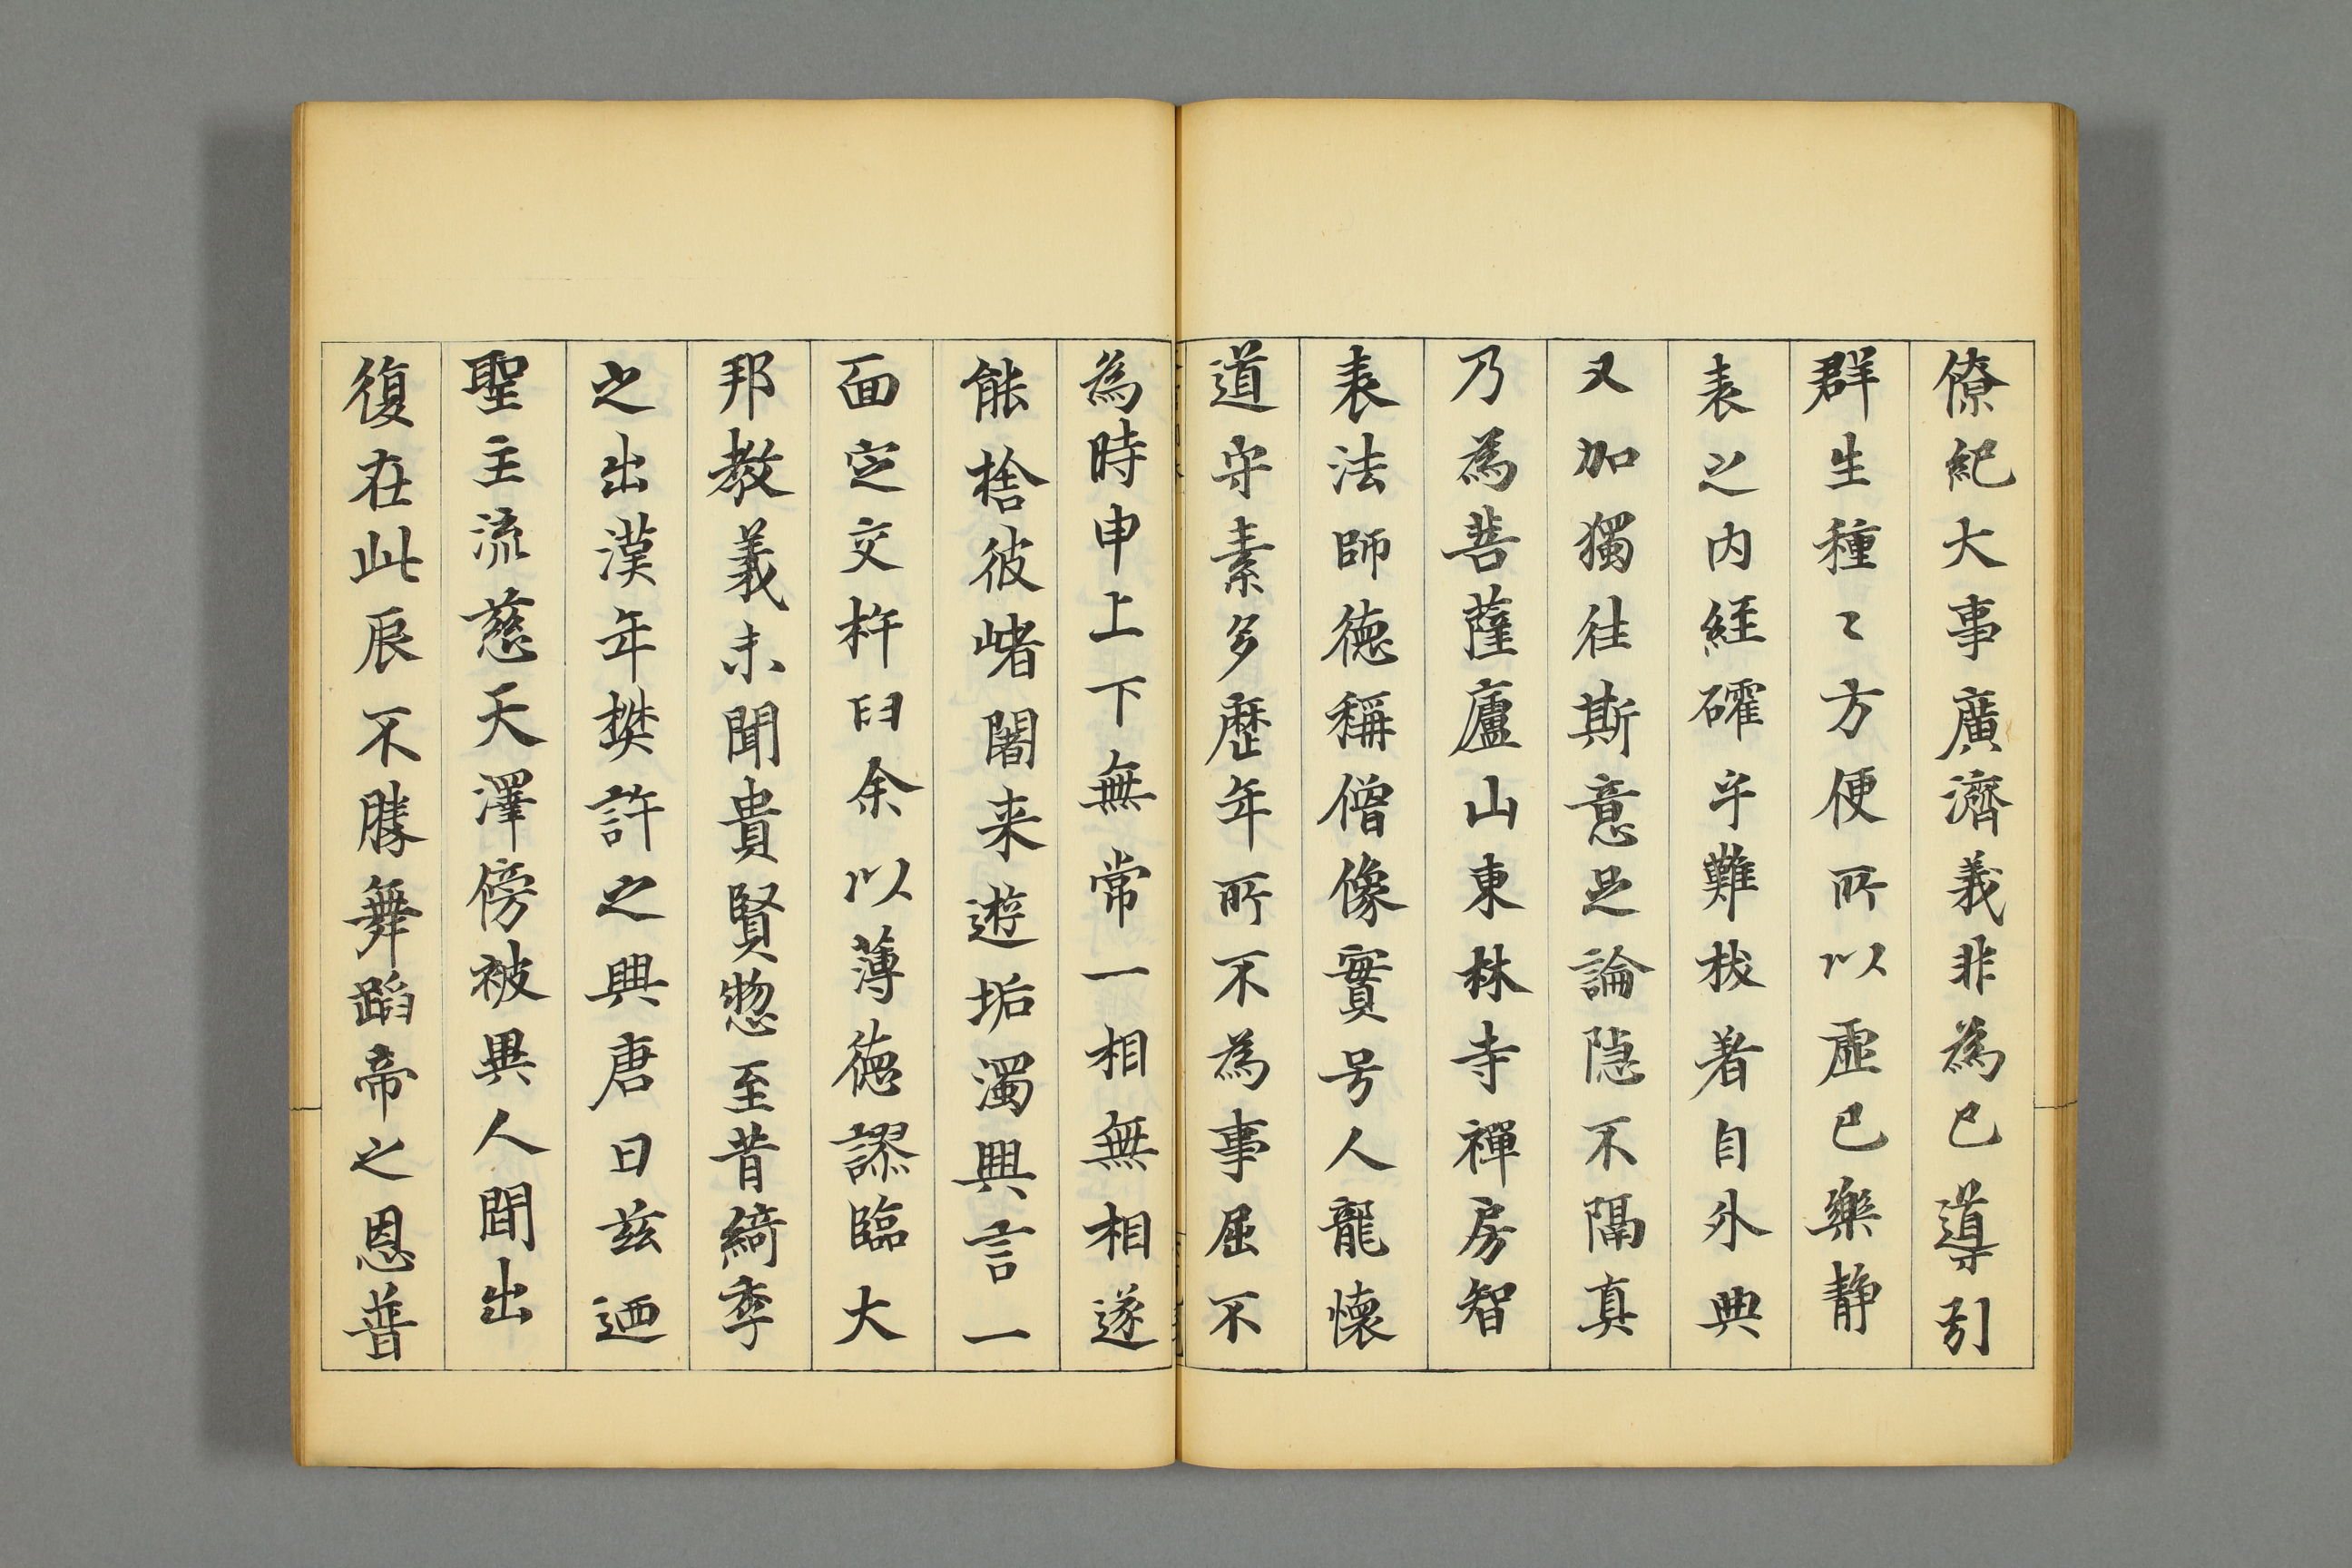 僚紀大事廣濟義非為已導引
群生種〻方便所以虛已樂靜
表之内經確乎難拔著自外典
又加獨往斯意足論隱不隔真
乃為菩薩廬山東林寺禪房智
表法師德稱僧像實号人龍懷
道守素多歷年所不為事屈不
為時申上下無常一相無相遂
能捨彼堵闍来遊垢濁興言一
面定交杵臼余以薄德謬臨大
邦教義未聞貴賢愗至昔綺季
之出漢年樊許之興唐日茲迺
聖主流慈天澤傍被異人間出
復在此辰不勝舞蹈帝之恩普